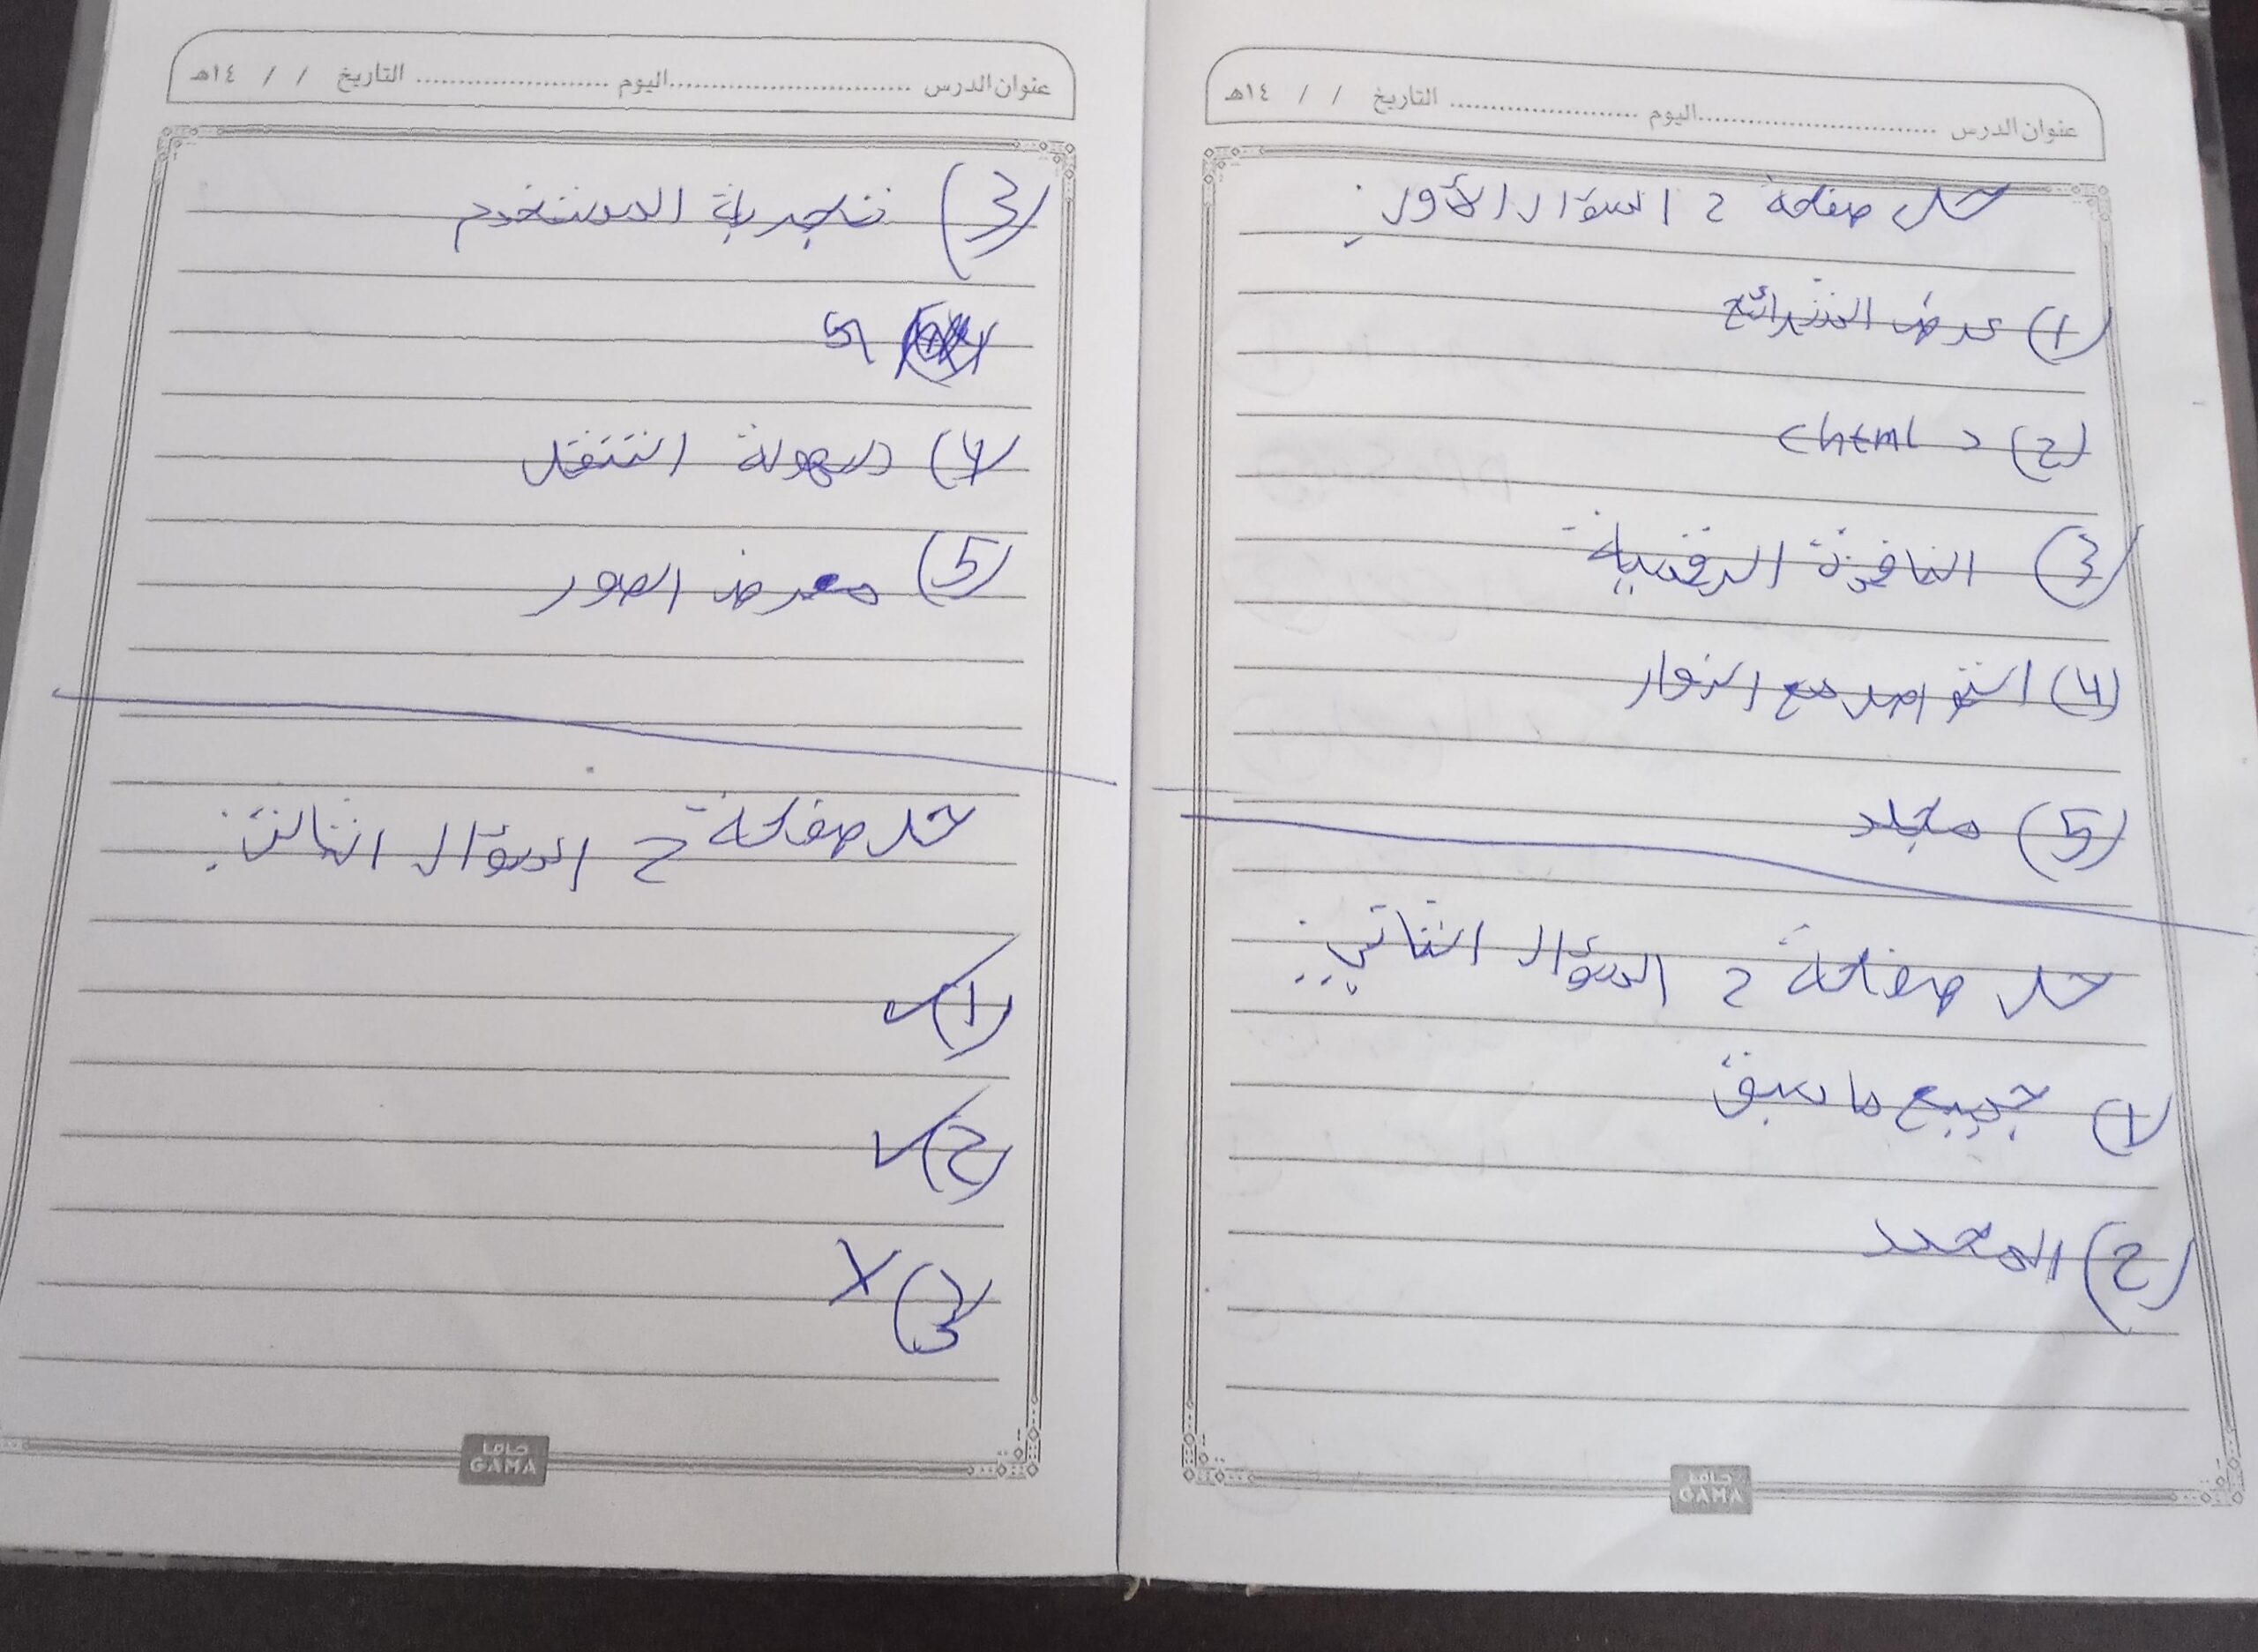 عنوان الدرس ........................ اليوم ........................ التاريخ / / ١٤هـ
حل صفحة 2 السؤال الأول:
1) عرض الشرائح
2) < html >
3) النافذة الرقمية
4) التواصل مع الزوار
5) مجلد
حل صفحة 2 السؤال الثاني:
1) جميع ما سبق
2) المحدد
جاما
GAMA
عنوان الدرس ........................ اليوم ........................ التاريخ / / ١٤هـ
3) تجربة المستخدم
4) سهولة التنقل
5) معرض الصور
حل صفحة 2 السؤال الثالث:
1) ✓
2) ✓
3) X
جاما
GAMA